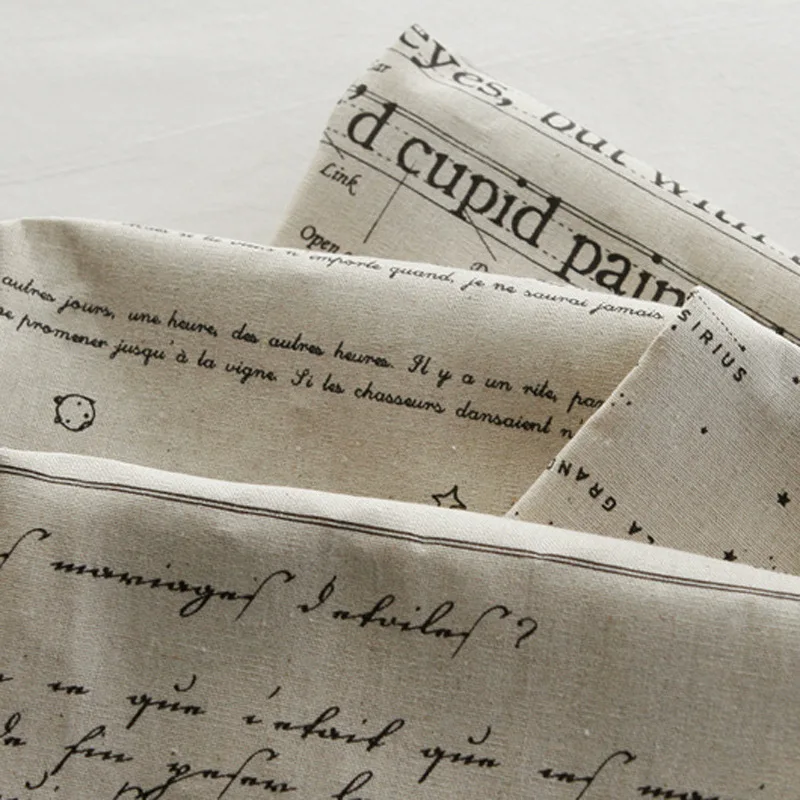 eyes, but with
d cupid pain
Link
Open
n'importe quand, je ne saurai jamais
autres jours, une heure, des autres heures. Il y a un rite, par
se promener jusqu'à la vigne. Si les chasseurs dansaient n'
SIRIUS
LA GRAND
mariages detoiles ?
ce que c'etait que ces
de fin peser